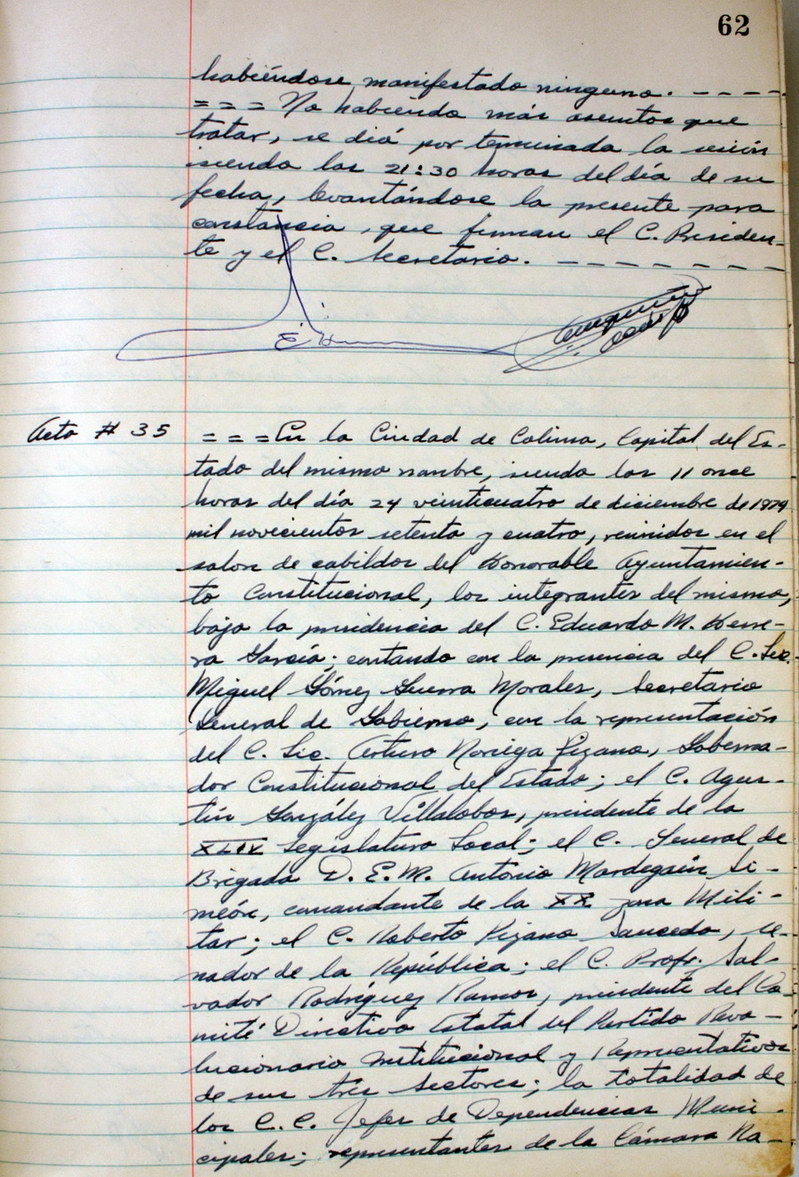 62
habiéndose manifestado ninguno. - - - -
= = = No habiendo más asuntos que
tratar, se dió por terminada la sesión
siendo las 21:30 horas del día de su
fecha, levantándose la presente para
constancia, que firman el C. Presiden-
te y el C. Secretario. - - - - - - - -
Acta # 35
= = = En la Ciudad de Colima, Capital del Es-
tado del mismo nombre, siendo las 11 once
horas del día 24 veinticuatro de diciembre de 1974
mil novecientos setenta y cuatro, reunidos en el
salón de cabildos del Honorable Ayuntamien-
to Constitucional, los integrantes del mismo,
bajo la presidencia del C. Eduardo M. Herre-
ra García; contando con la presencia del C. Lic.
Miguel Gómez Guerra Morales, Secretario
General de Gobierno, con la representación
del C. Lic. Arturo Noriega Pizano, Goberna-
dor Constitucional del Estado; el C. Agus-
tín González Villalobos, presidente de la
XLIV Legislatura Local; el C. General de
Brigada D. E. M. Antonio Mardegain Si-
meón, comandante de la XX zona Mili-
tar; el C. Roberto Pizano Saucedo, se-
nador de la República; el C. Profr. Sal-
vador Rodríguez Ramos, presidente del Co-
mité Directivo Estatal del Partido Revo-
lucionario Institucional y Representativos
de sus tres sectores; la totalidad de
los C. C. Jefes de Dependencias Muni-
cipales; representantes de la Cámara Na-